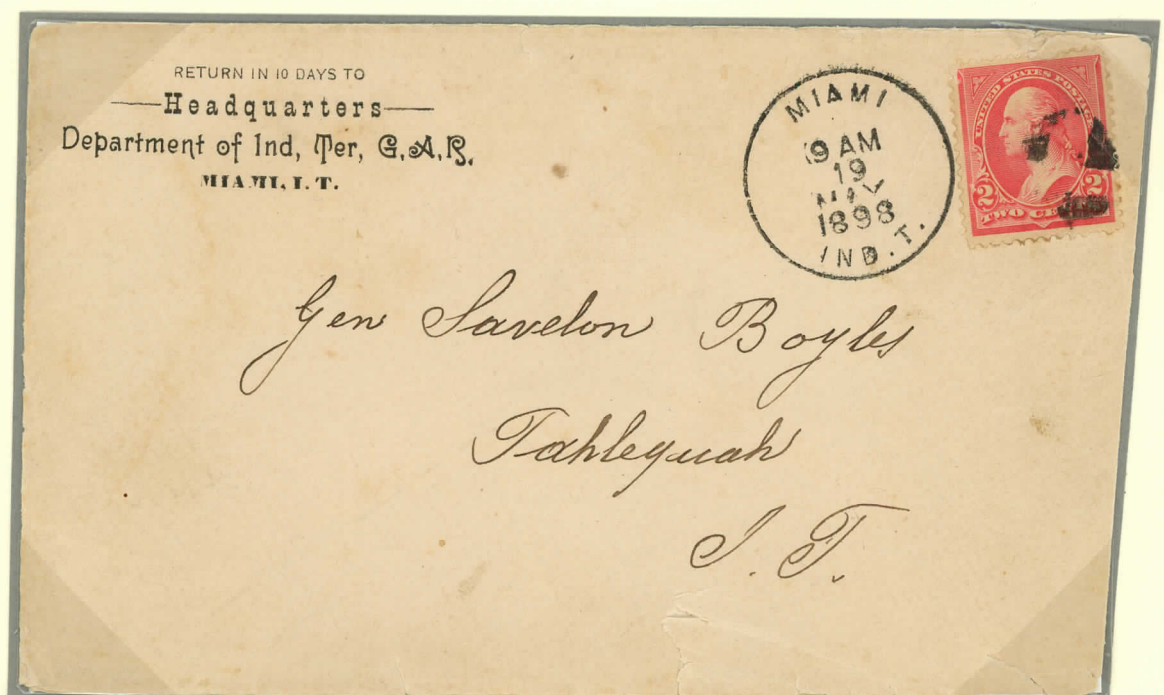 RETURN IN 10 DAYS TO
Headquarters
Department of Ind, Ter, G.A.R.
MIAMI, I. T.
MIAMI
9 AM
19
MAY
1898
IND. T.
UNITED STATES POSTAGE
2 2
TWO CE
Gen Savelon Boyles
Tahlequah
I. T.